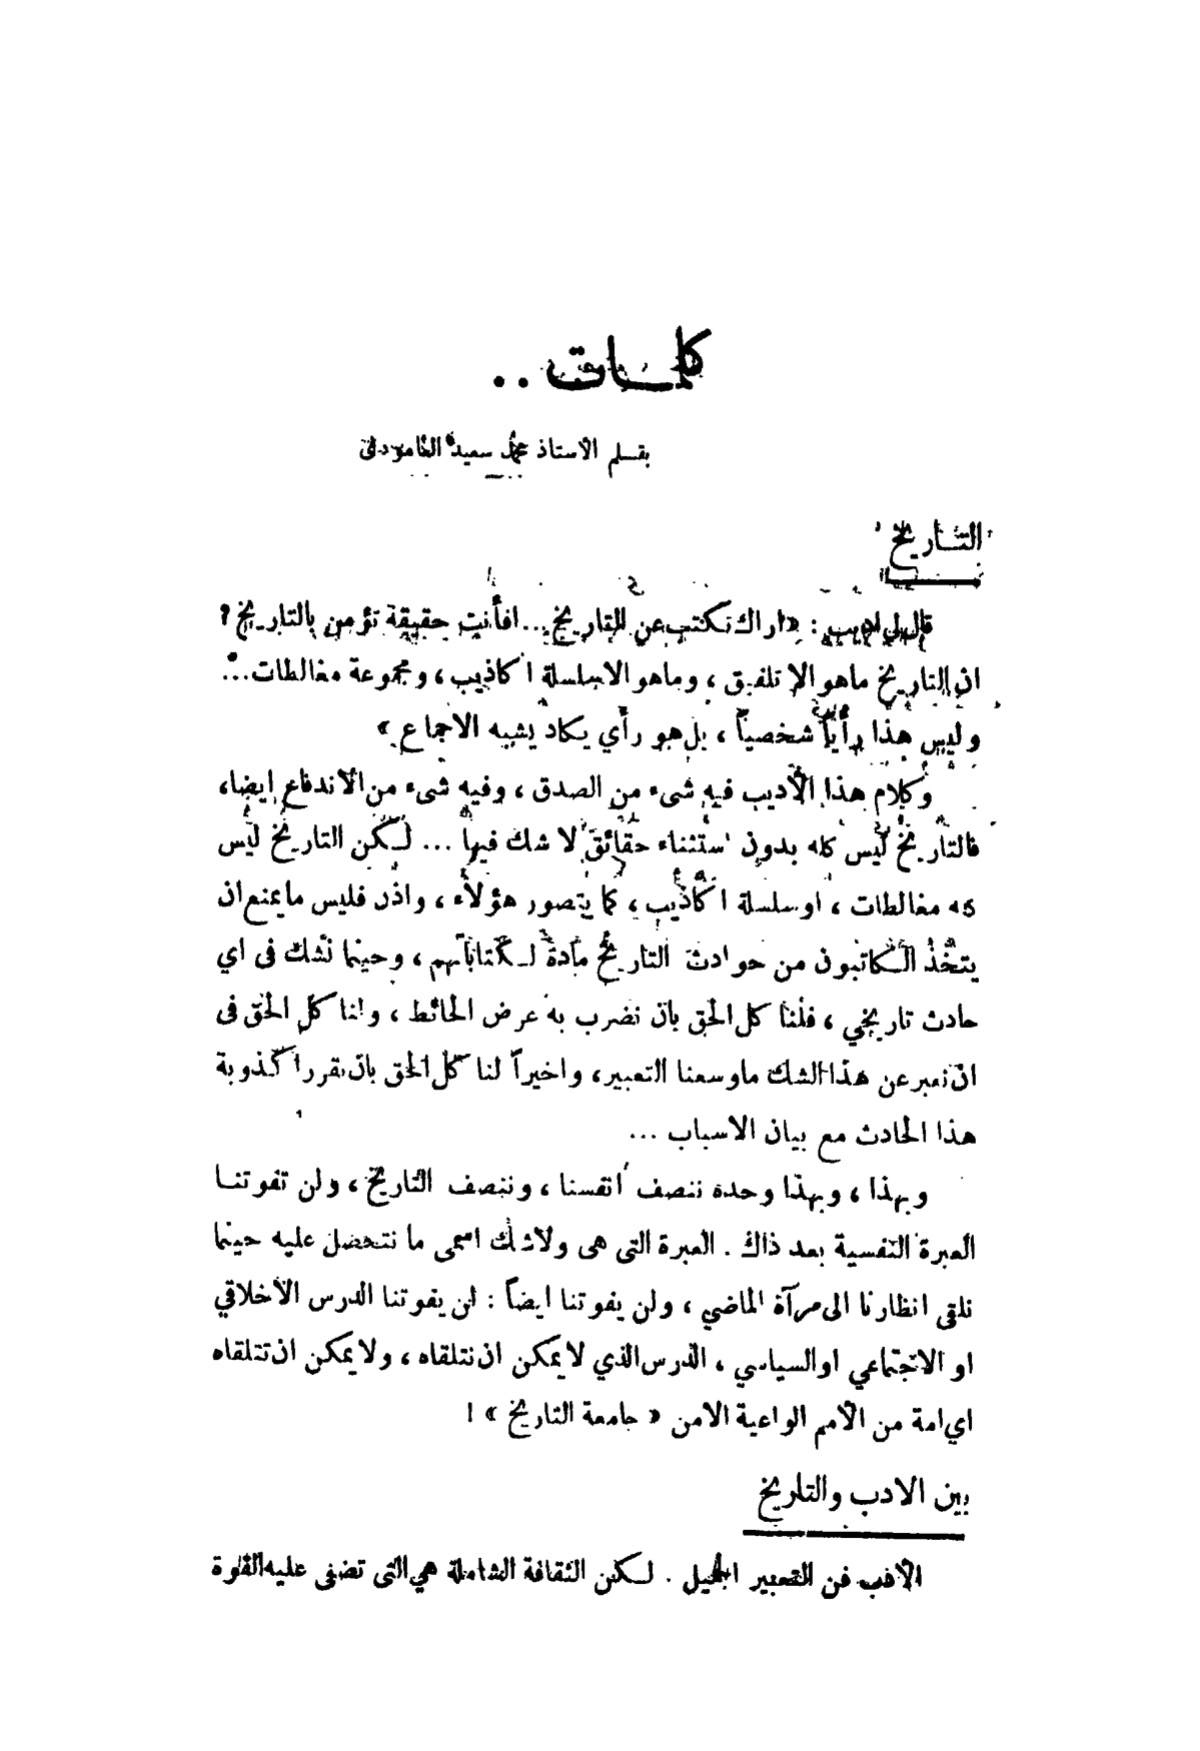 كلمات ..
بقلم الاستاذ محمد سعيد العامودى
التاريخ
قال لي اديب : «اراك تكتب عن التاريخ ... افأنت حقيقة تؤمن بالتاريخ ؟
ان التاريخ ماهو الا تلفيق ، وماهو الا سلسلة اكاذيب ، ومجموعة مغالطات ...
وليس هذا رأياً شخصياً ، بل هو رأي يكاد يشبه الاجماع »
وكلام هذا الأديب فيه شىء من الصدق ، وفيه شىء من الاندفاع ايضا ،
فالتاريخ ليس كله بدون استثناء حقائق لا شك فيها ... لكن التاريخ ليس
كله مغالطات ، او سلسلة اكاذيب ، كما يتصور هؤلاء ، واذن فليس ما يمنع ان
يتخذ الكاتبون من حوادث التاريخ مادة لكتاباتهم ، وحينما نشك فى اي
حادث تاريخي ، فلنا كل الحق بان نضرب به عرض الحائط ، ولنا كل الحق فى
ان نعبر عن هذا الشك ما وسعنا التعبير ، واخيراً لنا كل الحق بان نقرر اكذوبة
هذا الحادث مع بيان الاسباب ...
وبهذا ، وبهذا وحده ننصف أنفسنا ، وننصف التاريخ ، ولن تفوتنا
العبرة النفسية بعد ذاك . العبرة التى هى ولاشك اسمى ما نتحصل عليه حينما
نلقى انظارنا الى مرآة الماضي ، ولن يفوتنا ايضاً : لن يفوتنا الدرس الأخلاقي
او الاجتماعي او السياسي ، الدرس الذي لا يمكن ان نتلقاه ، ولا يمكن ان تتلقاه
اي امة من الأمم الواعية الا من « جامعة التاريخ » !
بين الادب والتاريخ
الأدب فن التعبير الجميل . لكن الثقافة الشاملة هي التى تضفى عليه القوة